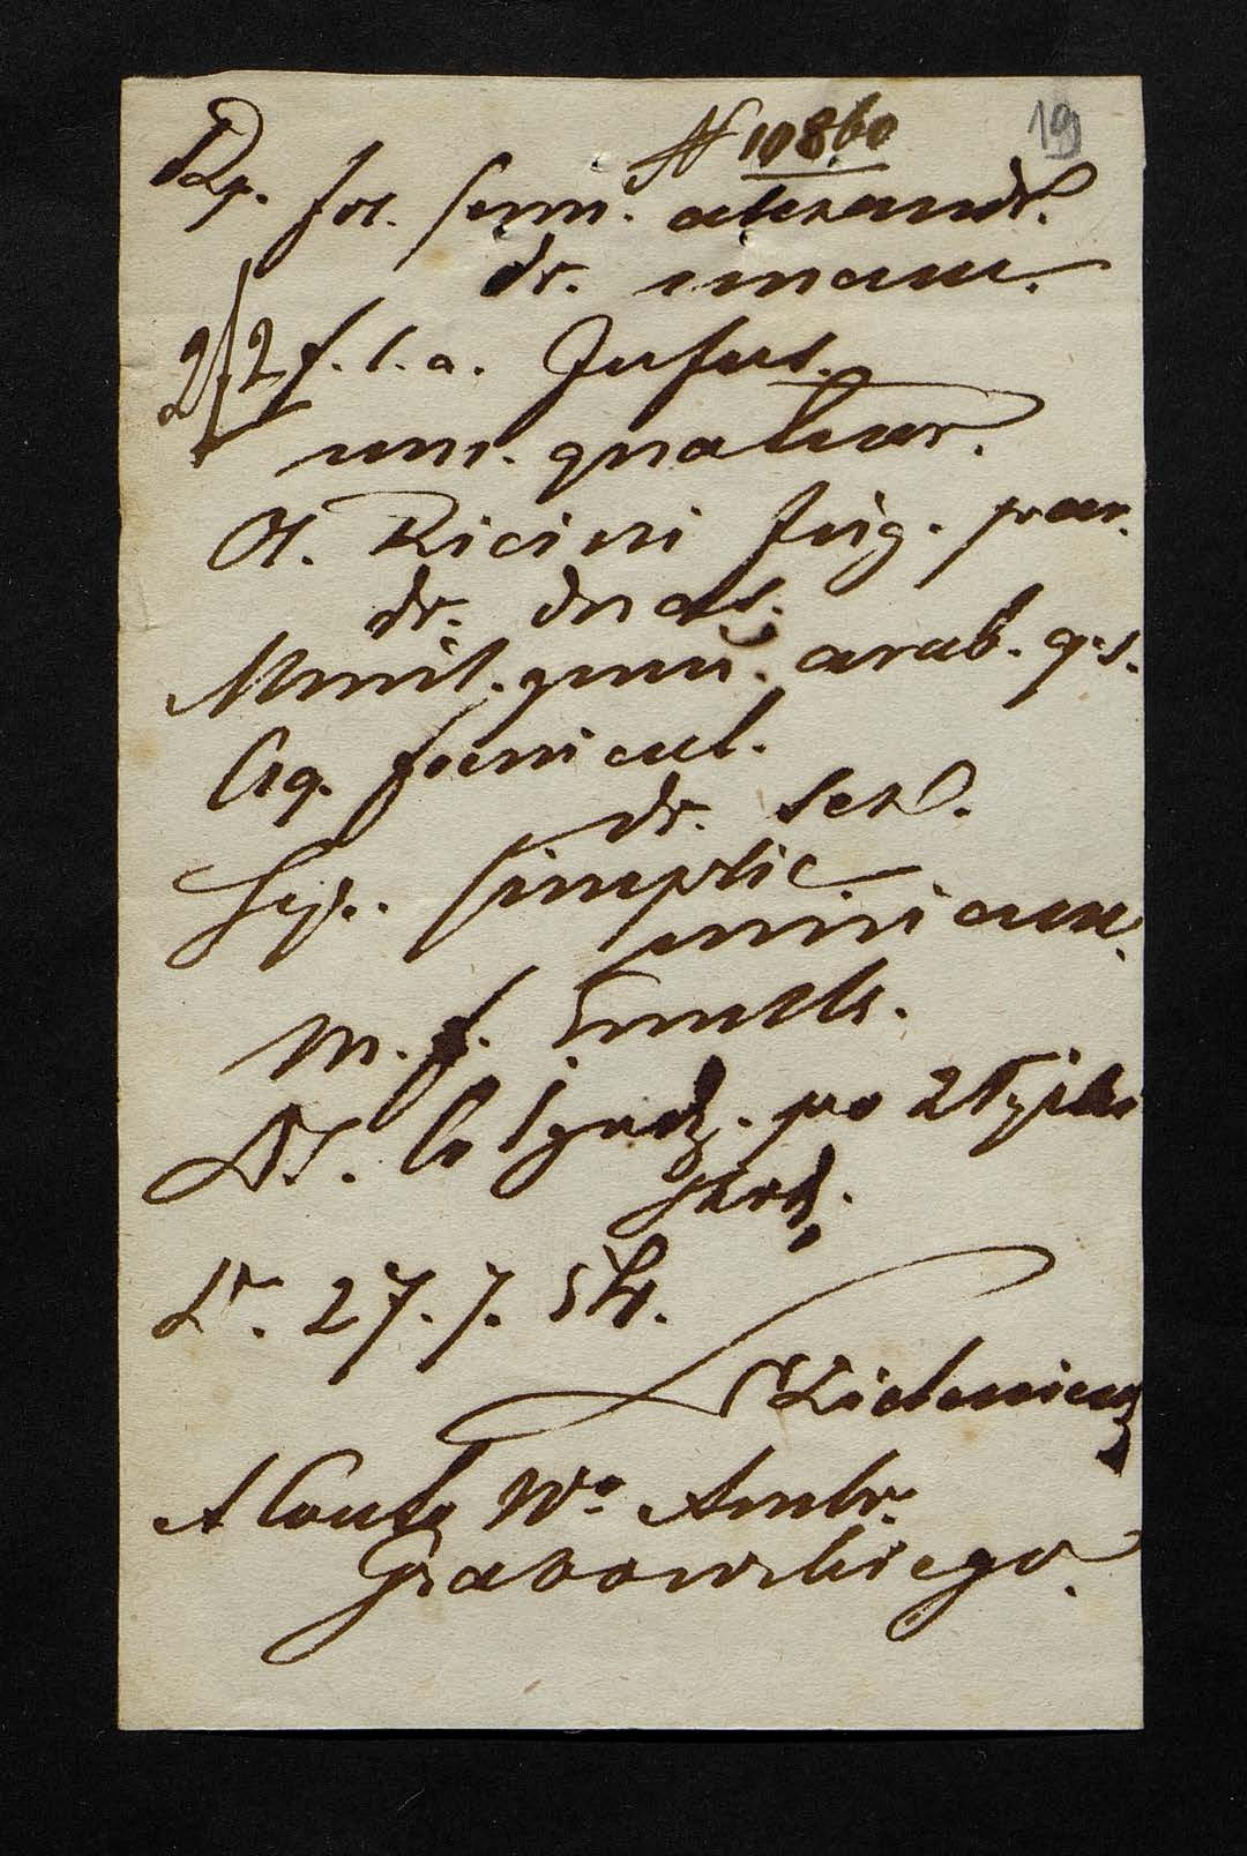 N 10860
19
Rp. fol. Senn. alexandr.
dr. unam.
2/2 f. l. a. Infus.
unc. quatuor.
Ol. Ricini frig. par.
dr. duas.
Mucil. gum. arab. q. s.
Aq. foenicul.
dr. sex.
Syr. simplic.
unciam.
M. f. Emuls.
DS. Co 1 godz. po 2 łyżki
27. 7. 54.
A Conto Wo Ambr.
Grabowskiego.